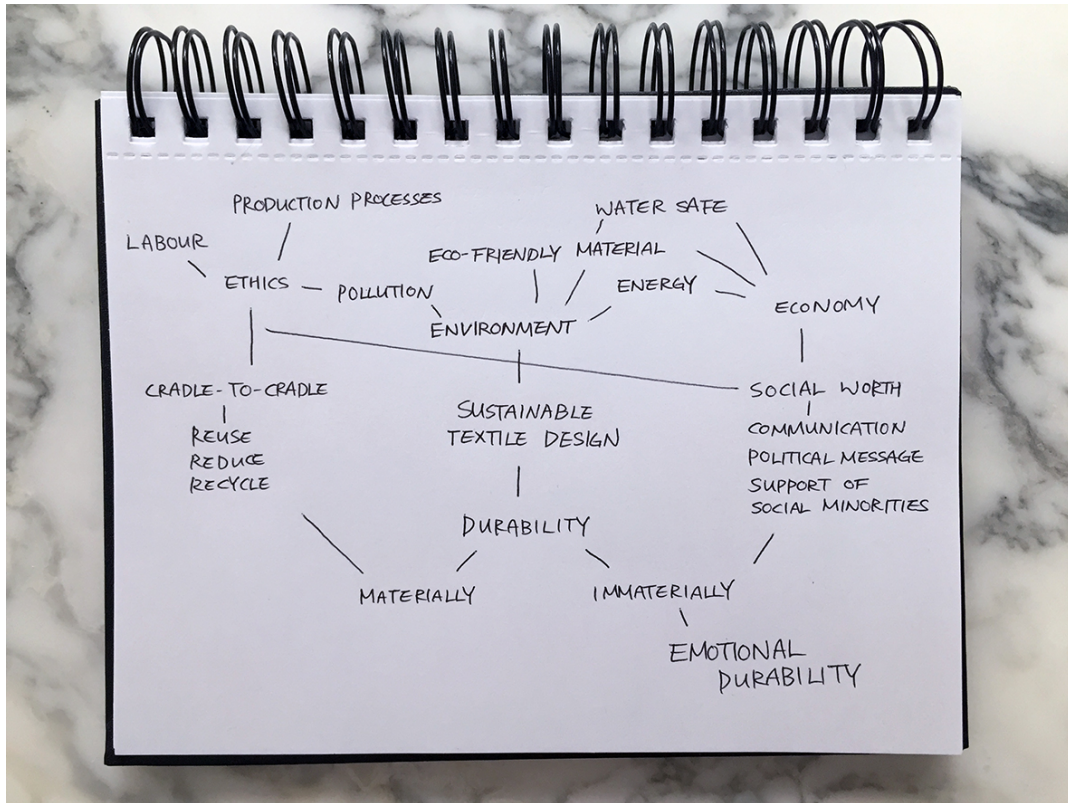 PRODUCTION PROCESSES
WATER SAFE
LABOUR
ECO-FRIENDLY
MATERIAL
ETHICS
POLLUTION
ENERGY
ECONOMY
ENVIRONMENT
CRADLE-TO-CRADLE
SOCIAL WORTH
REUSE
REDUCE
RECYCLE
SUSTAINABLE
TEXTILE DESIGN
COMMUNICATION
POLITICAL MESSAGE
SUPPORT OF
SOCIAL MINORITIES
DURABILITY
MATERIALLY
IMMATERIALLY
EMOTIONAL
DURABILITY